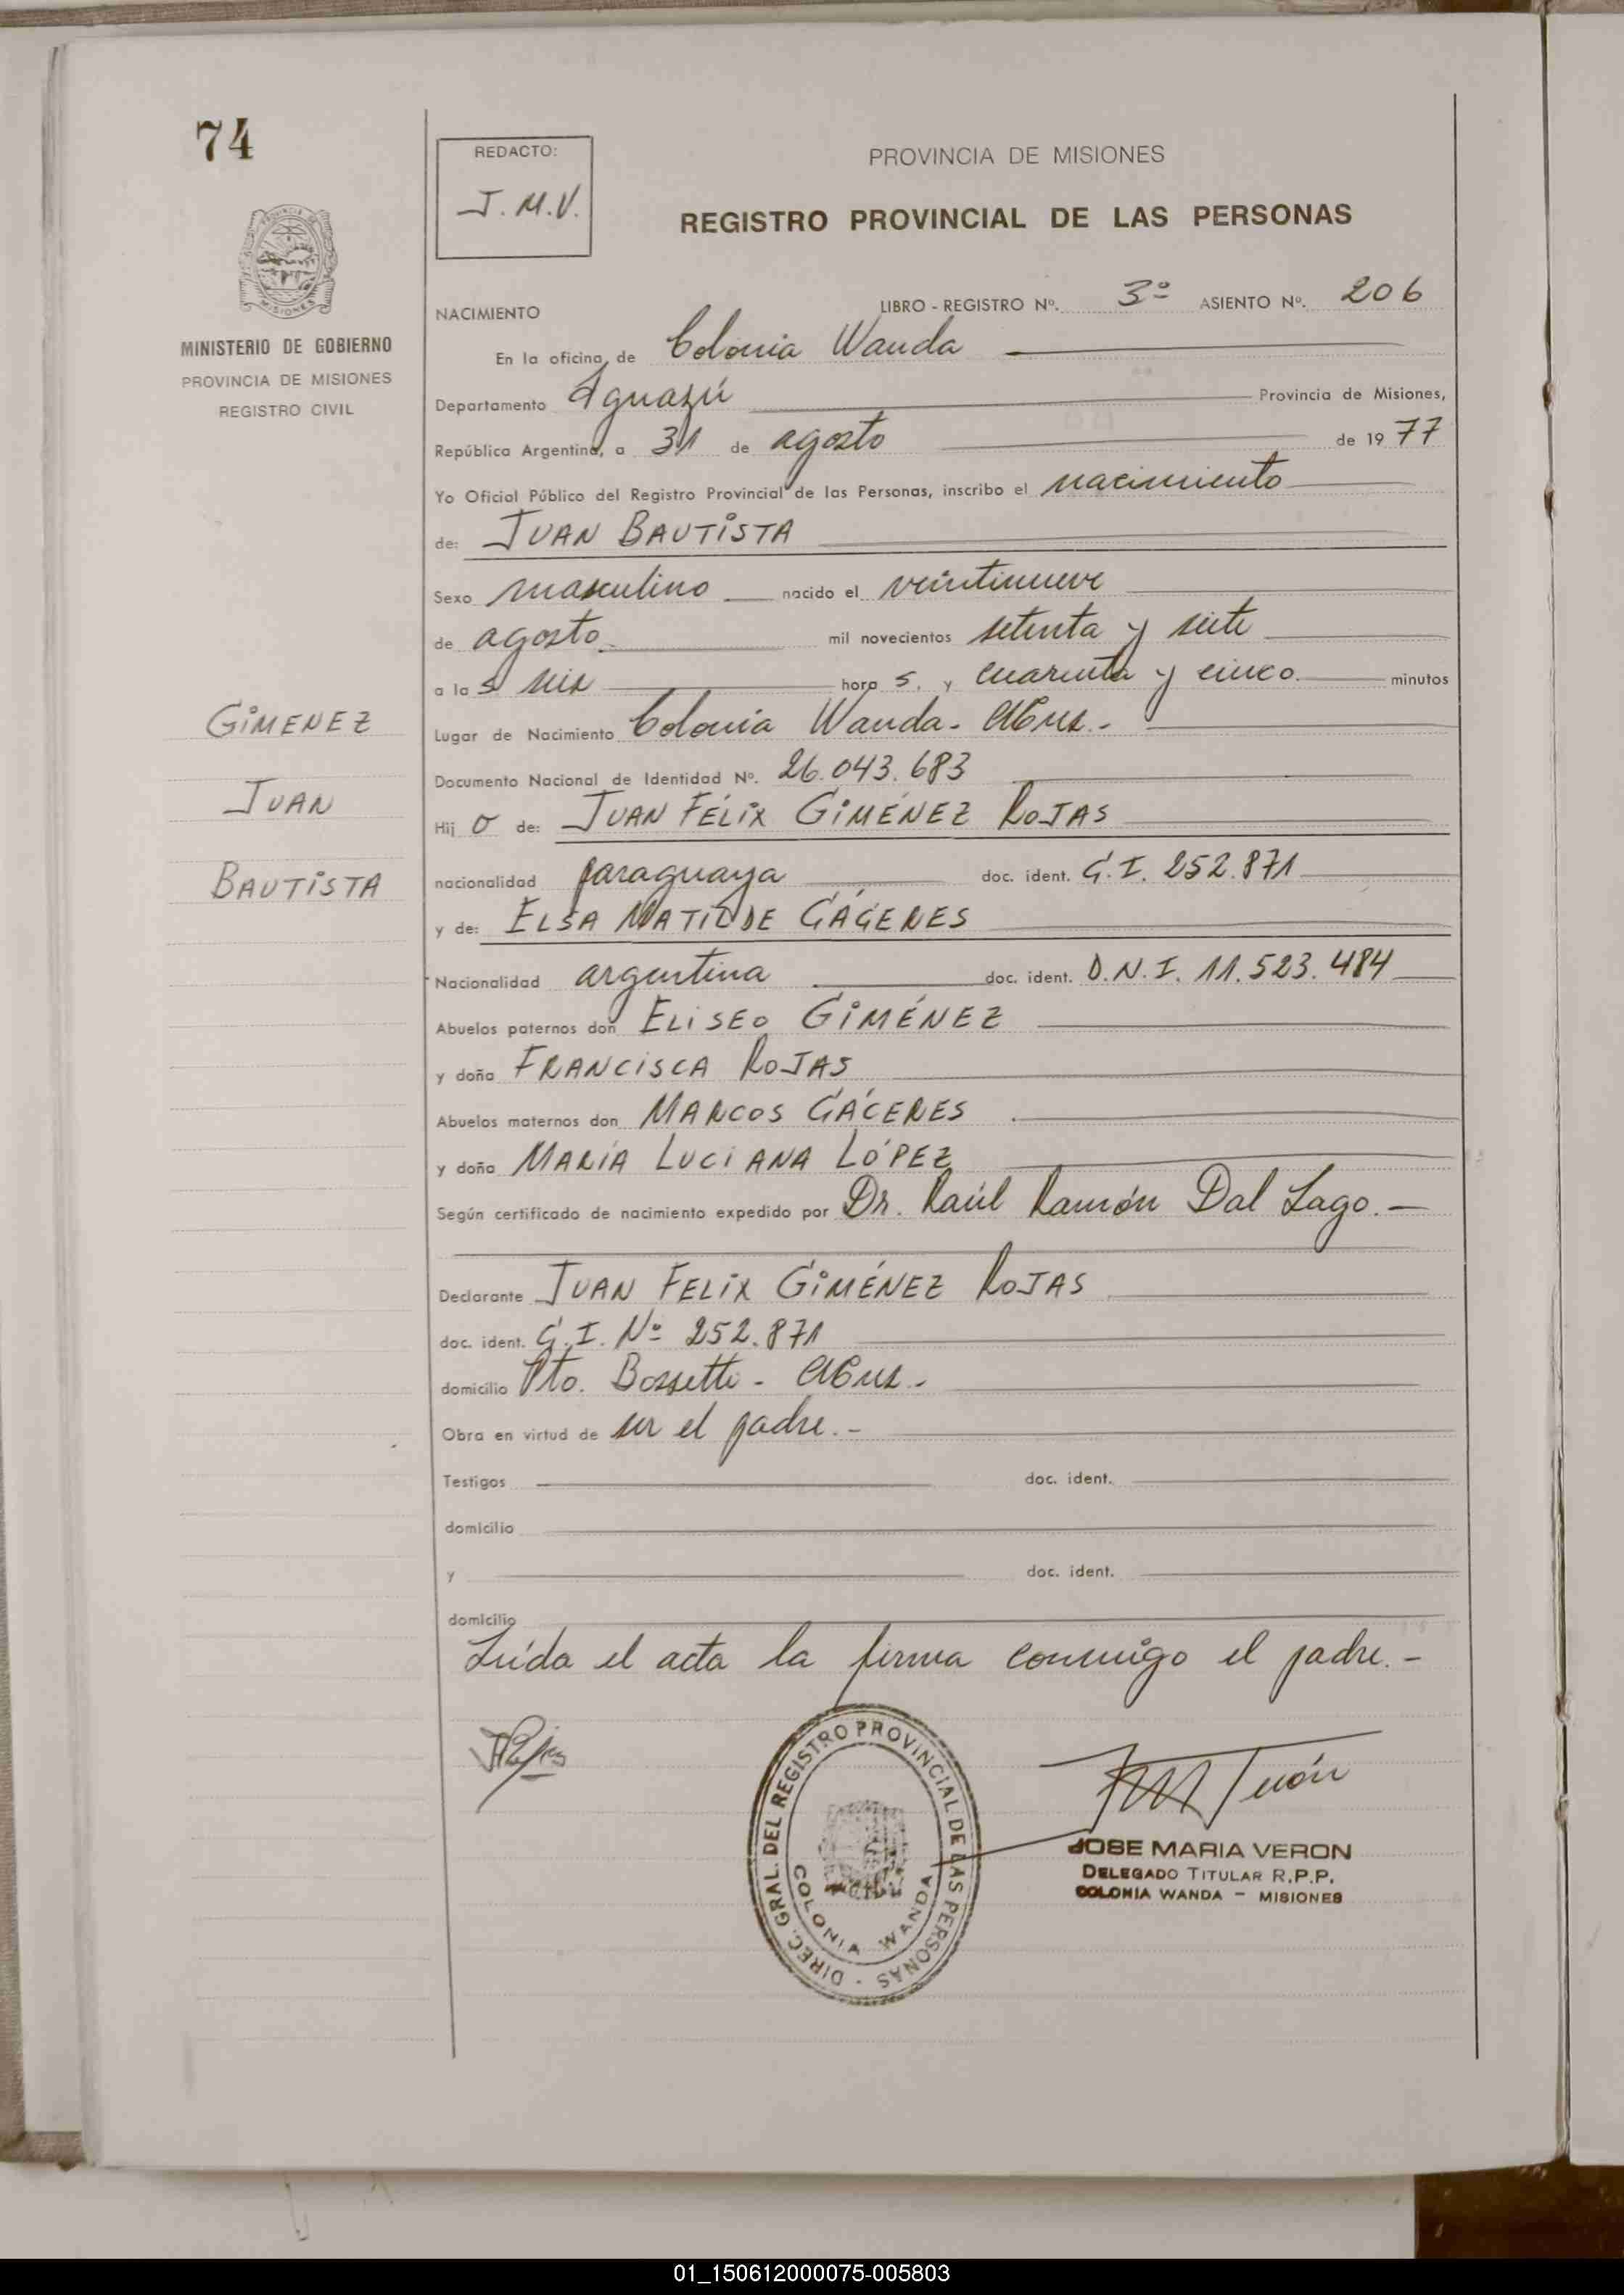 74
REDACTO:
J. M. V.
PROVINCIA DE MISIONES
REGISTRO PROVINCIAL DE LAS PERSONAS
PROVINCIA DE MISIONES
MINISTERIO DE GOBIERNO
PROVINCIA DE MISIONES
REGISTRO CIVIL
NACIMIENTO LIBRO - REGISTRO Nº. 3º ASIENTO Nº. 206
En la oficina de Colonia Wanda
Departamento Iguazú Provincia de Misiones,
República Argentina, a 31 de agosto de 1977
Yo Oficial Público del Registro Provincial de las Personas, inscribo el nacimiento
de: JUAN BAUTISTA
Sexo masculino nacido el veintinueve
de agosto mil novecientos setenta y siete
a las seis horas, y cuarenta y cinco. minutos
GIMENEZ
JUAN
BAUTISTA
Lugar de Nacimiento Colonia Wanda - Mnes.-
Documento Nacional de Identidad Nº. 26.043.683
Hijo de: JUAN FÉLIX GIMÉNEZ ROJAS
nacionalidad paraguaya doc. ident. C.I. 252.871
y de: ELSA MATILDE CÁCERES
Nacionalidad argentina doc. ident. D.N.I. 11.523.484
Abuelos paternos don ELISEO GIMÉNEZ
y doña FRANCISCA ROJAS
Abuelos maternos don MARCOS CÁCERES
y doña MARÍA LUCIANA LÓPEZ
Según certificado de nacimiento expedido por Dr. Raúl Ramón Dal Lago.-
Declarante JUAN FELIX GIMÉNEZ ROJAS
doc. ident. C.I. Nº 252.871
domicilio Pto. Bossetti - Mnes.-
Obra en virtud de ser el padre.-
Testigos doc. ident.
domicilio
y doc. ident.
domicilio
Leída el acta la firma conmigo el padre.-
DIREC. GRAL. DEL REGISTRO PROVINCIAL DE LAS PERSONAS -
COLONIA WANDA
JOSE MARIA VERON
DELEGADO TITULAR R.P.P.
COLONIA WANDA - MISIONES
01_150612000075-005803